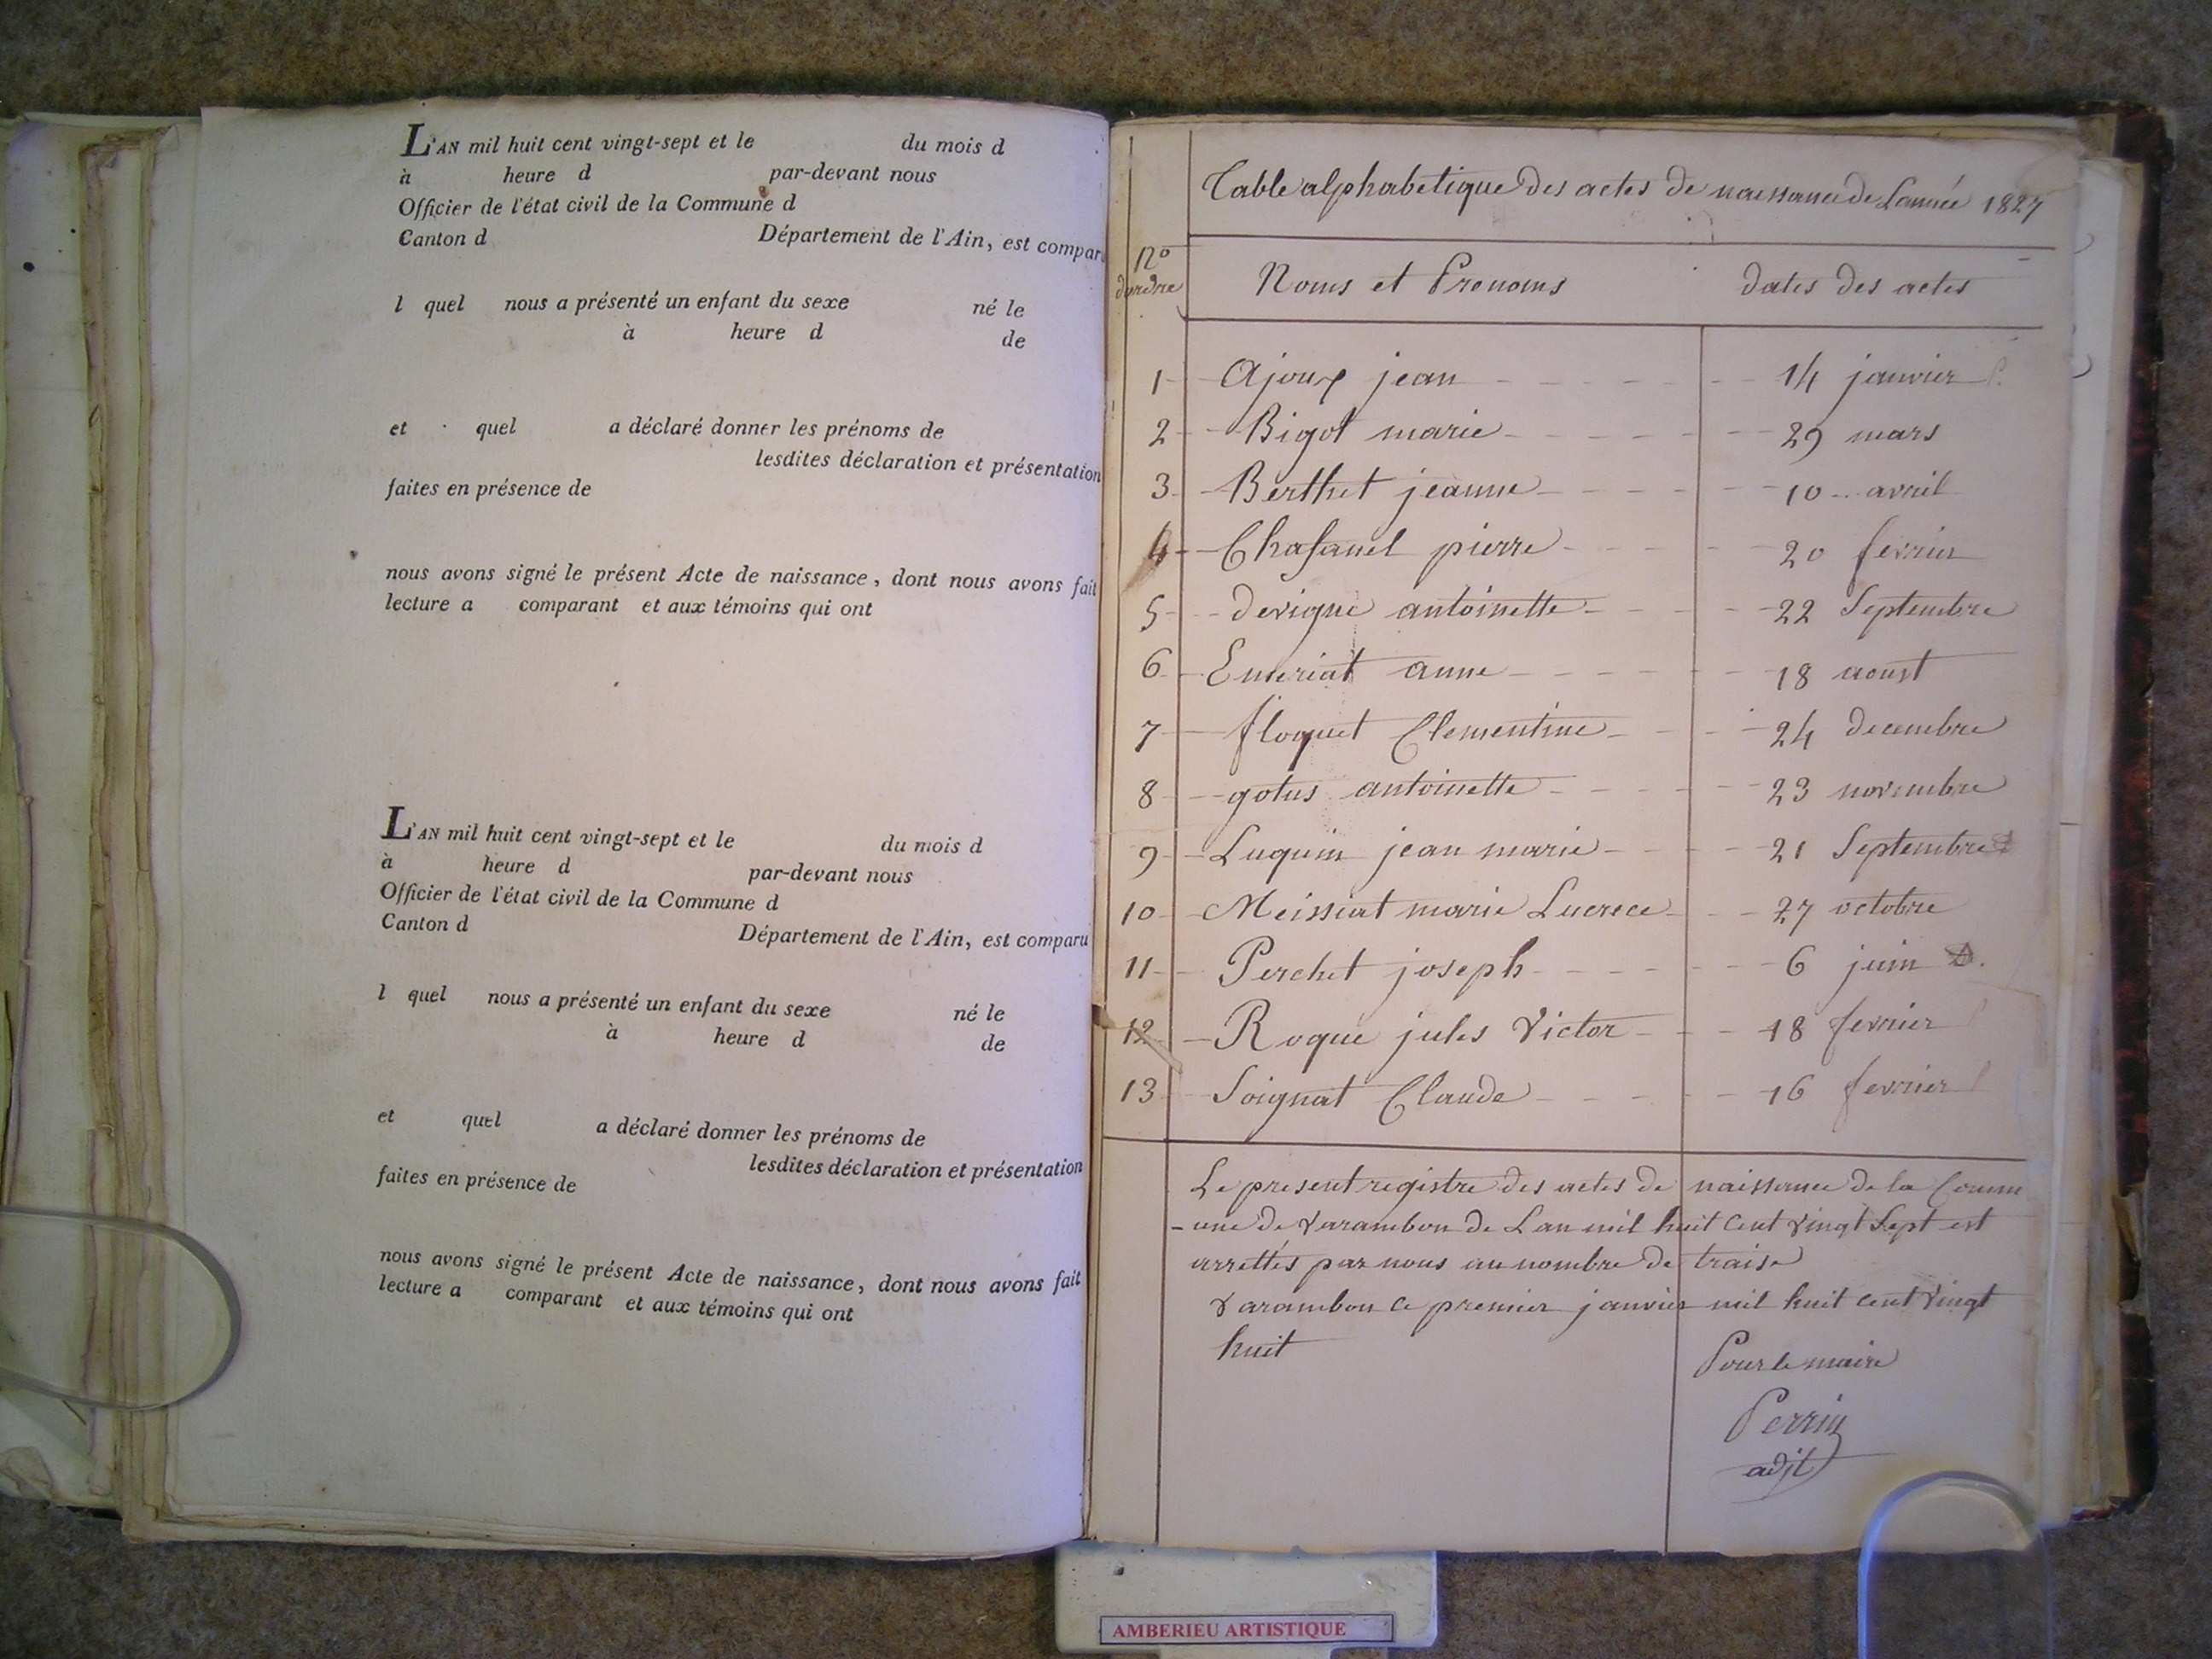 L'AN mil huit cent vingt-sept et le du mois d
à heure d par-devant nous
Officier de l'état civil de la Commune d
Canton d Département de l'Ain, est comparu
l quel nous a présenté un enfant du sexe né le
à heure d de
et quel a déclaré donner les prénoms de
lesdites déclaration et présentation
faites en présence de
nous avons signé le présent Acte de naissance, dont nous avons fait
lecture a comparant et aux témoins qui ont
L'AN mil huit cent vingt-sept et le du mois d
à heure d par-devant nous
Officier de l'état civil de la Commune d
Canton d Département de l'Ain, est comparu
l quel nous a présenté un enfant du sexe né le
à heure d de
et quel a déclaré donner les prénoms de
lesdites déclaration et présentation
faites en présence de
nous avons signé le présent Acte de naissance, dont nous avons fait
lecture a comparant et aux témoins qui ont
Table alphabetique des actes de naissance de Lannée 1827
No dordre Noms et Prenoms dates des actes
1 Ajoux jean 14 janvier
2 Bigot marie 29 mars
3 Berthet jeanne 10 avril
4 Chasanel pierre 20 fevrier
5 devigne antoinette 22 Septembre
6 Emeriat anne 18 aoust
7 floquet Clementine 24 decembre
8 gotus antoinette 23 novembre
9 Luquin jean marie 21 Septembre
10 Meissiat marie Lucrece 27 octobre
11 Perchet joseph 6 juin
12 Roque jules Victor 18 fevrier
13 Soignat Claude 16 fevrier
Le present registre des actes de naissance de la Comm
-une de Varambon de Lan mil huit Cent Vingt Sept est
arrettés par nous au nombre de traise
Varambon Ce premier janvier mil huit cent Vingt
huit
Pour le maire
Perrin
adjt
AMBERIEU ARTISTIQUE